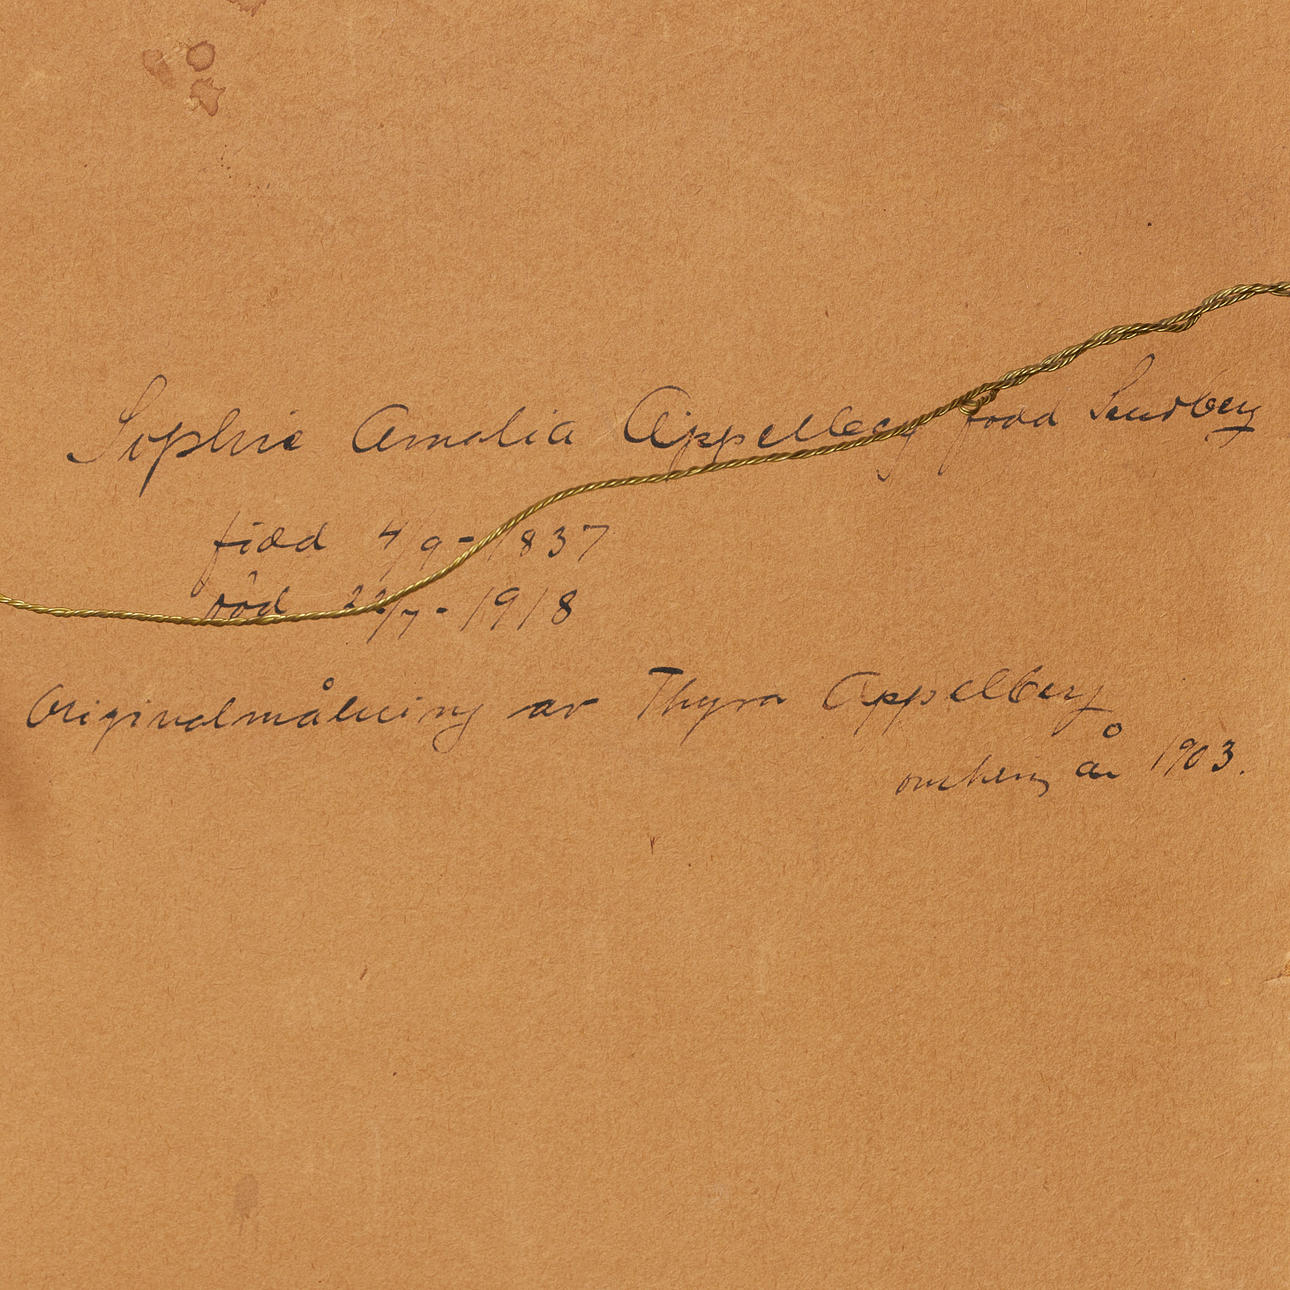 Sophie Amalia Appelberg född Sundberg
född 4/9-1837
död 22/7-1918
Originalmålning av Thyra Appelberg
omkring år 1903.